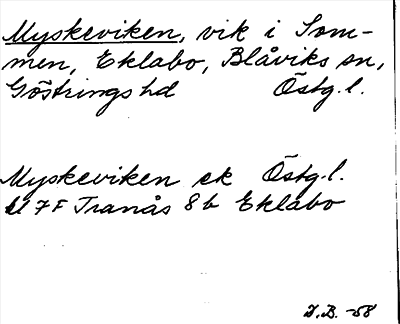 Myskeviken, vik i Som-
men, Eklabo, Blåviks sn,
Göstrings hd Östg.l.
Myskeviken ek Östg.l.
7F Tranås 8b Eklabo
J.B. -58